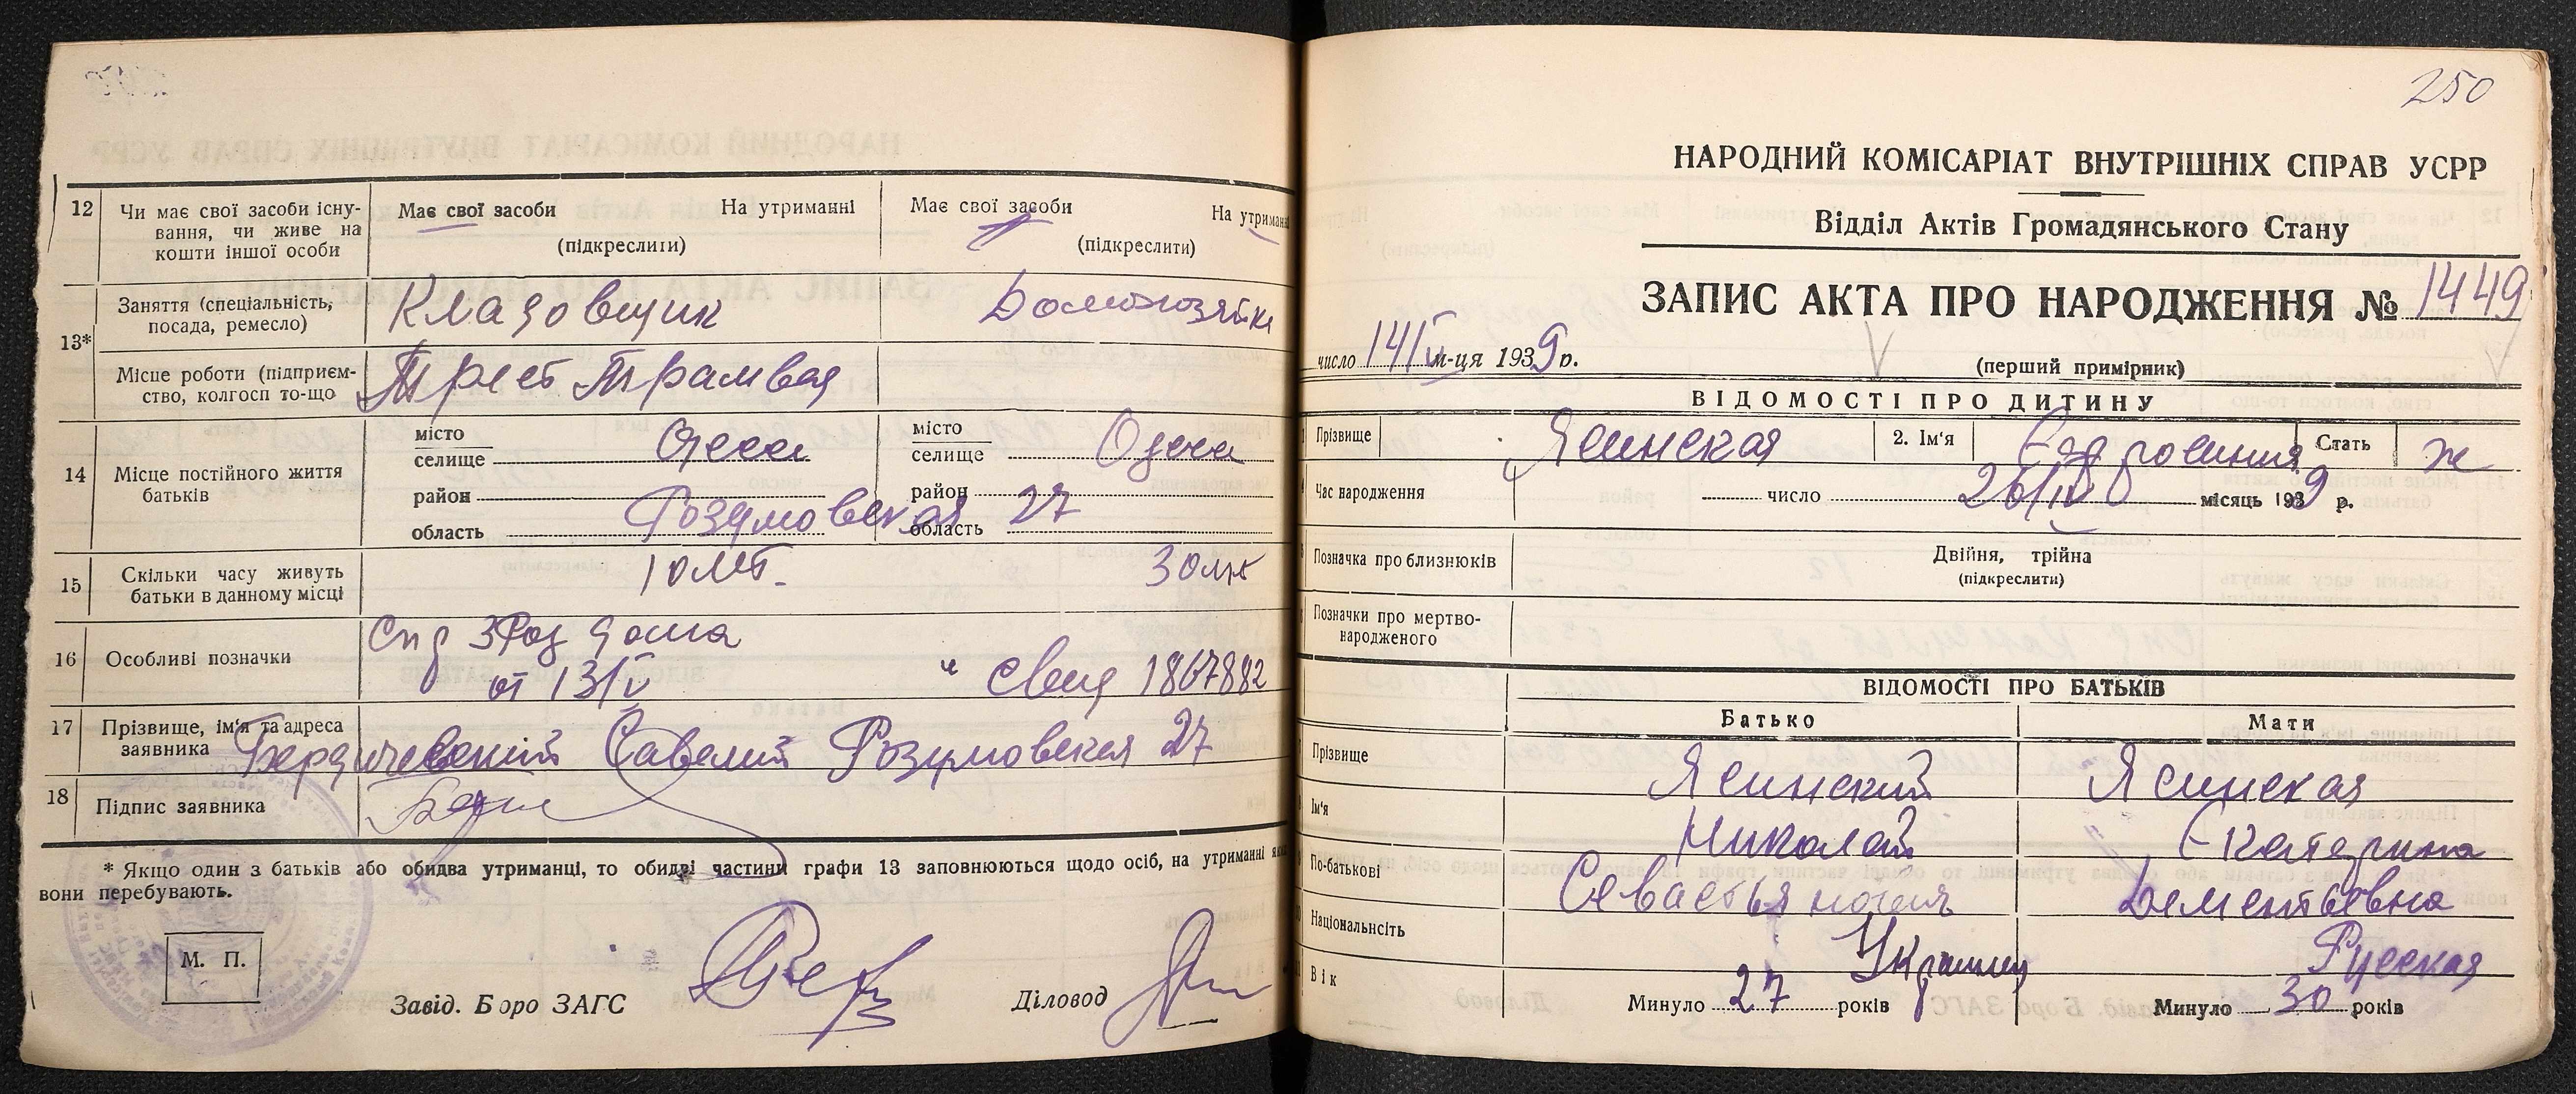 12 Чи має свої засоби існу-
вання, чи живе на
кошти іншої особи
Має свої засоби На утриманні
(підкреслити)
Має свої засоби На утриманні
(підкреслити)
13*
Заняття (спеціальність,
посада, ремесло)
Кладовщик Домохозяйка
Місце роботи (підприєм-
ство, колгосп то-що
Трест Трамвая
14 Місце постійного життя
батьків
місто
селище Одесса
район
область
місто
селище Одесса
район
область
Розумовская 27
15 Скільки часу живуть
батьки в данному місці
10 лет 30 лет
16 Особливі позначки
Спр 3 Род дома
от 13/V и свид 1867882
17 Прізвище, ім'я та адреса
заявника
Бердичевский Савелий Розумовская 27
18 Підпис заявника
* Якщо один з батьків або обидва утриманці, то обидві частини графи 13 заповнюються щодо осіб, на утриманні яких
вони перебувають.
М. П.
Завід. Бюро ЗАГС
Діловод
250
НАРОДНИЙ КОМІСАРІАТ ВНУТРІШНІХ СПРАВ УСРР
Відділ Актів Громадянського Стану
ЗАПИС АКТА ПРО НАРОДЖЕННЯ № 1449
число 14/V м-ця 1939 р.
(перший примірник)
ВІДОМОСТІ ПРО ДИТИНУ
Прізвище Ясинская 2. Ім'я Стать ж
Час народження число 26/IV місяць 1939 р.
Позначка про близнюків
Двійня, трійна
(підкреслити)
Позначки про мертво-
народженого
ВІДОМОСТІ ПРО БАТЬКІВ
Батько Мати
Прізвище Ясинский Ясинская
Ім'я Николай Екатерина
По-батькові Севастьянович Дементьевна
Національність Украинец Русская
Вік Минуло 27 років Минуло 30 років